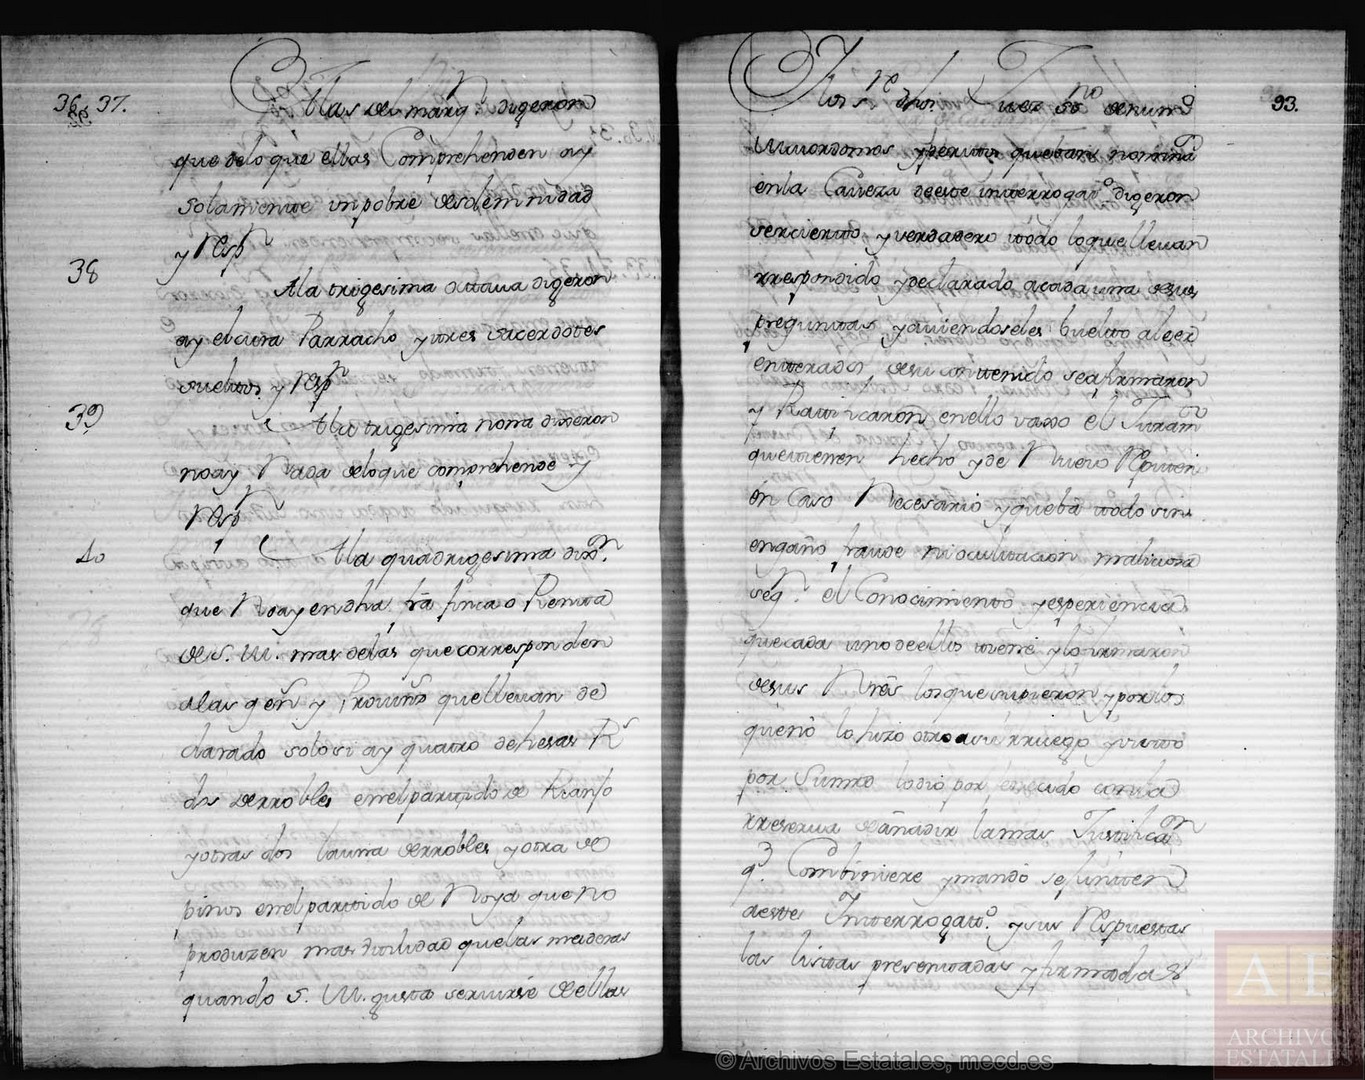 36 37.
Alas del marg.n digeron
que delo que ellas Comprehenden ay
solamente un pobre de solemnidad
y Resp.n
38
Ala trigesima octtaua digeron
ay el cura Parracho y tres sacerdotes
sueltos, y Resp.n
39
Ala trigesima nona dixeron
no ay Nada delo que comprehende y
Resp.n
40
Ala quadrigesima dix.n
que No ay en dha tra finca o Rentta
de S. M. mas delas que corresponden
alas gen.s y Prouin.s que lleuan de
clarado solo si ay quatro dehesas R.s
dos de rrobles en el partido de Rianjo
y otras dos la una de rrobles y otra de
pinos en el partido de Noya que no
produzen mas Vtilidad que las maderas
quando S. M. gusta seruirse de ellas
93.
Mayordomos y peritos que ban nomina
en la Caueza de este interrogat.o digeron
ser cierto y verdadero todo lo que lleuan
rrespondido y declarado a cada una de sus
preguntas y auiendoseles buelto a leer
enterados de su contenido se afirmaron
y Ratificaron en ello vaxo el Juram.to
que tienen hecho y de Nuevo Repiten
en Caso Necesario y que ba todo sin
engaño fraude ni ocultacion maliciosa
seg.n el Conocimiento y esperiencia
que cada uno de ellos tiene y lo firmaron
de sus Nres los que supieron y por los
que no lo hizo otro a su rruego y visto
por Su mrd lo dio por fenecido con la
rreserua de añadir la mas Justifica.n
q.e Combiniere y mando se junten
a este Interrogat.o y sus Respuestas
las listas presentadas y firmadas
© Archivos Estatales, mecd.es
AE
ARCHIVOS
ESTATALES